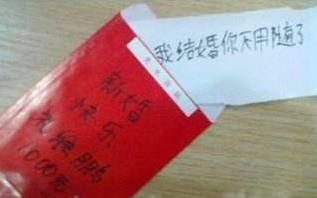 我结婚你不用随了
新婚
快乐
1000元